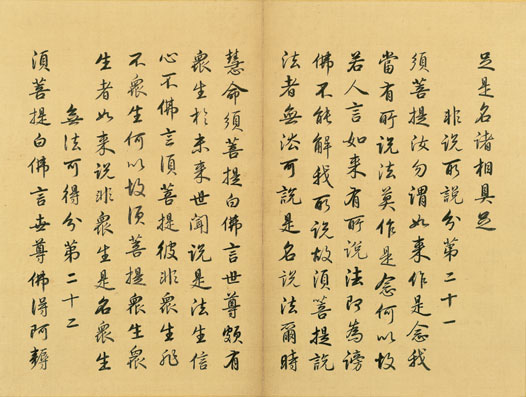 足是名諸相具足
非說所說分第二十一
須菩提汝勿謂如來作是念我
當有所說法莫作是念何以故
若人言如來有所說法即為謗
佛不能解我所說故須菩提說
法者無法可說是名說法爾時
慧命須菩提白佛言世尊頗有
眾生於未來世聞說是法生信
心不佛言須菩提彼非眾生非
不眾生何以故須菩提眾生眾
生者如來說非眾生是名眾生
無法可得分第二十二
須菩提白佛言世尊佛得阿耨